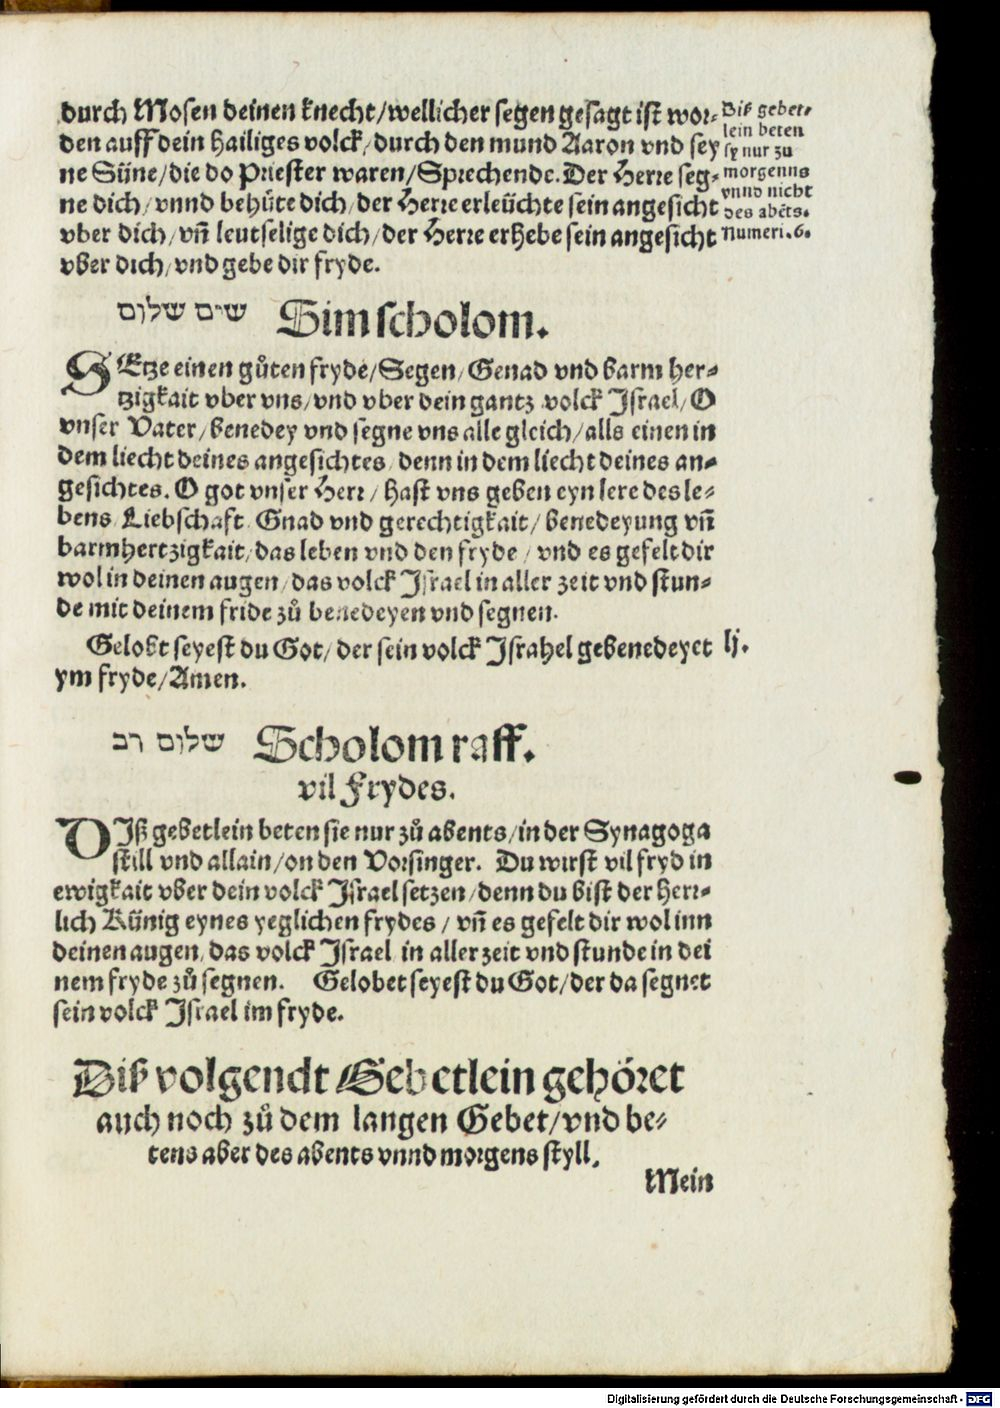 durch Mosen deinen knecht/wellicher segen gesagt ist wor-
den auff dein hailiges volck/durch den mund Aaron vnd sey
ne Süne/die do Priester waren/Sprechende. Der Herre seg-
ne dich/vnnd behüte dich/der Herre erleüchte sein angesicht
vber dich/vñ leutselige dich/der Herre erhebe sein angesicht
vber dich/vnd gebe dir fryde.
Diß gebet-
lein beten
sy nur zu
morgenns
vnnd nicht
des abẽts.
Numeri.6.
שים שלום Sim scholom.
SEtze einen gůten fryde/Segen/Genad vnd barm her-
tzigkait vber vns/vnd vber dein gantz volck Israel/O
vnser Vater/benedey vnd segne vns alle gleich/alls einen in
dem liecht deines angesichtes/denn in dem liecht deines an-
gesichtes. O got vnser Herr/hast vns geben eyn lere des le-
bens/Liebschaft/Gnad vnd gerechtigkait/benedeyung vñ
barmhertzigkait/das leben vnd den fryde/vnd es gefelt dir
wol in deinen augen/das volck Israel in aller zeit vnd stun-
de mit deinem fride zů benedeyen vnd segnen.
Gelobt seyest du Got/der sein volck Israhel gebenedeyet lj.
ym fryde/Amen.
שלום רב Scholom raff.
vil Frydes.
DIß gebetlein beten sie nur zů abents/in der Synagoga
still vnd allain/on den Vorsinger. Du wirst vil fryd in
ewigkait vber dein volck Israel setzen/denn du bist der herr-
lich Künig eynes yeglichen frydes/vñ es gefelt dir wol inn
deinen augen/das volck Israel in aller zeit vnd stunde in dei
nem fryde zů segnen. Gelobet seyest du Got/der da segnet
sein volck Israel im fryde.
Diß volgendt Gebetlein gehöret
auch noch zů dem langen Gebet/vnd be-
tens aber des abents vnnd morgens styll.
Mein
Digitalisierung gefördert durch die Deutsche Forschungsgemeinschaft - DFG